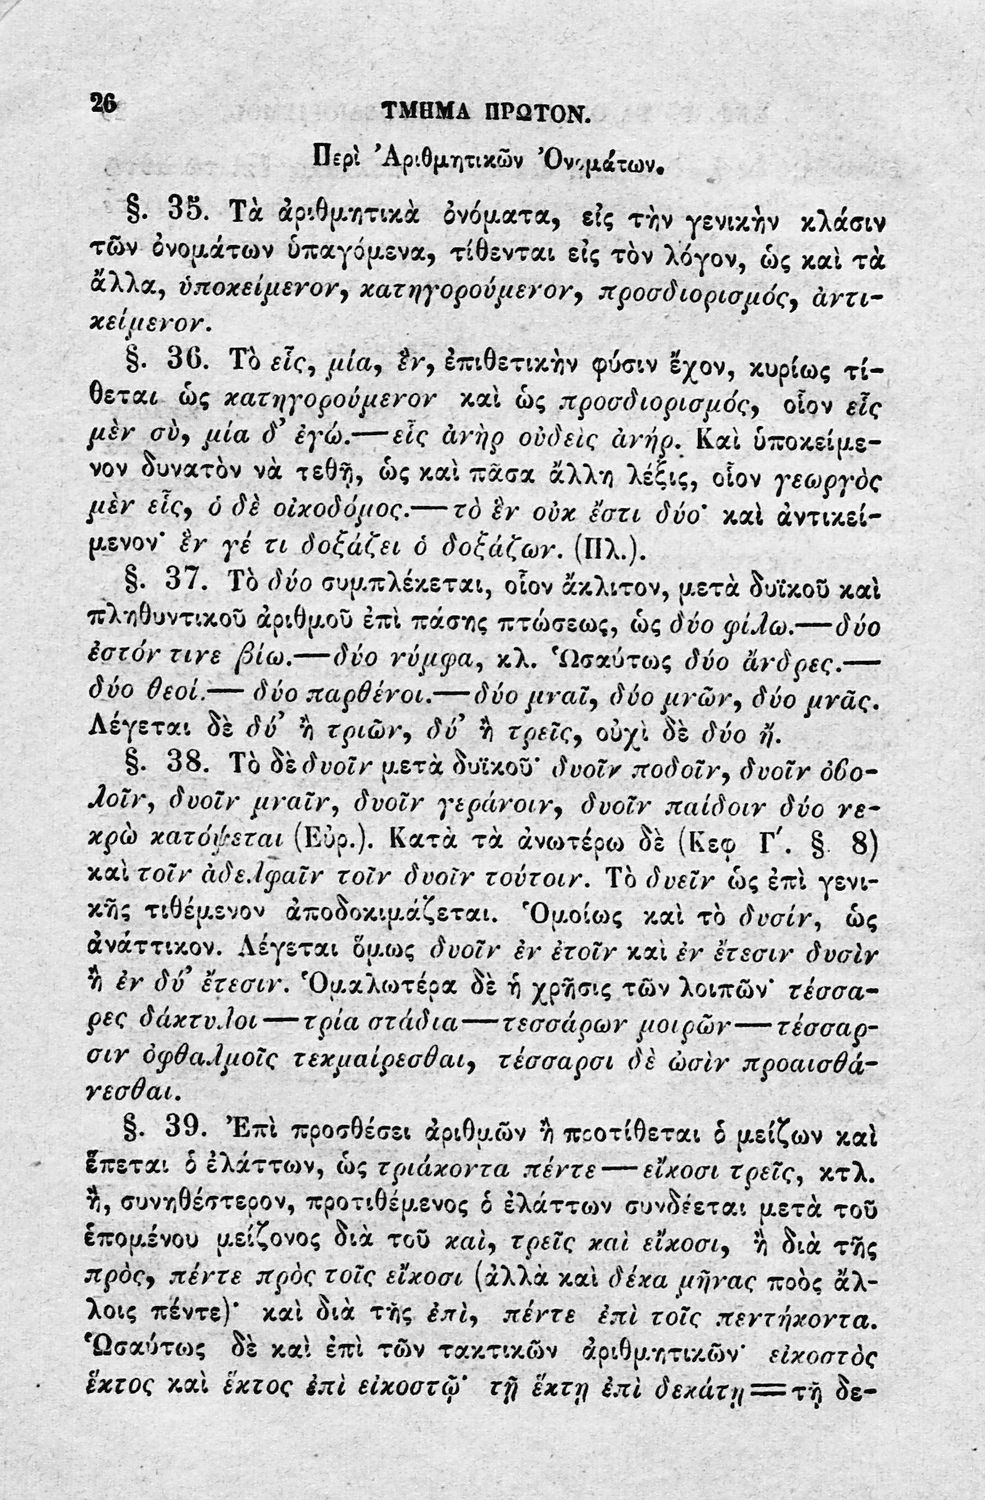 26
ΤΜΗΜΑ ΠΡΩΤΟΝ.
Περὶ Ἀριθμητικῶν Ὀνομάτων.
§. 35. Τὰ ἀριθμητικὰ ὀνόματα, εἰς τὴν γενικὴν κλάσιν
τῶν ὀνομάτων ὑπαγόμενα, τίθενται εἰς τὸν λόγον, ὡς καὶ τὰ
ἄλλα, ὑποκείμενον, κατηγορούμενον, προσδιορισμός, ἀντι-
κείμενον.
§. 36. Τὸ εἷς, μία, ἓν, ἐπιθετικὴν φύσιν ἔχον, κυρίως τί-
θεται ὡς κατηγορούμενον καὶ ὡς προσδιορισμός, οἷον εἷς
μὲν σὺ, μία δ’ ἐγώ.—εἷς ἀνὴρ οὐδεὶς ἀνήρ. Καὶ ὑποκείμε-
νον δυνατὸν νὰ τεθῇ, ὡς καὶ πᾶσα ἄλλη λέξις, οἷον γεωργὸς
μὲν εἷς, ὁ δὲ οἰκοδόμος.—τὸ ἓν οὐκ ἔστι δύο· καὶ ἀντικεί-
μενον· ἕν γέ τι δοξάζει ὁ δοξάζων. (Πλ.).
§. 37. Τὸ δύο συμπλέκεται, οἷον ἄκλιτον, μετὰ δυϊκοῦ καὶ
πληθυντικοῦ ἀριθμοῦ ἐπὶ πάσης πτώσεως, ὡς δύο φίλω.—δύο
ἐστόν τινε βίω.—δύο νύμφα, κλ. Ὡσαύτως δύο ἄνδρες.—
δύο θεοί.— δύο παρθένοι.—δύο μναῖ, δύο μνῶν, δύο μνᾶς.
Λέγεται δὲ δύ’ ἢ τριῶν, δύ’ ἢ τρεῖς, οὐχὶ δὲ δύο ἤ.
§. 38. Τὸ δὲ δυοῖν μετὰ δυϊκοῦ· δυοῖν ποδοῖν, δυοῖν ὀβο-
λοῖν, δυοῖν μναῖν, δυοῖν γεράνοιν, δυοῖν παίδοιν δύο νε-
κρὼ κατόψεται (Εὐρ.). Κατὰ τὰ ἀνωτέρω δὲ (Κεφ Γ΄. § 8)
καὶ τοῖν ἀδελφαῖν τοῖν δυοῖν τούτοιν. Τὸ δυεῖν ὡς ἐπὶ γενι-
κῆς τιθέμενον ἀποδοκιμάζεται. Ὁμοίως καὶ τὸ δυσίν, ὡς
ἀνάττικον. Λέγεται ὅμως δυοῖν ἐν ἐτοῖν καὶ ἐν ἔτεσιν δυσὶν
ἢ ἐν δύ’ ἔτεσιν. Ὁμαλωτέρα δὲ ἡ χρῆσις τῶν λοιπῶν· τέσσα-
ρες δάκτυλοι—τρία στάδια—τεσσάρων μοιρῶν—τέσσαρ-
σιν ὀφθαλμοῖς τεκμαίρεσθαι, τέσσαρσι δὲ ὠσὶν προαισθά-
νεσθαι.
§. 39. Ἐπὶ προσθέσει ἀριθμῶν ἢ προτίθεται ὁ μείζων καὶ
ἕπεται ὁ ἐλάττων, ὡς τριάκοντα πέντε—εἴκοσι τρεῖς, κτλ.
ἢ, συνηθέστερον, προτιθέμενος ὁ ἐλάττων συνδέεται μετὰ τοῦ
ἑπομένου μείζονος διὰ τοῦ καὶ, τρεῖς καὶ εἴκοσι, ἢ διὰ τῆς
πρὸς, πέντε πρὸς τοῖς εἴκοσι (ἀλλὰ καὶ δέκα μῆνας πρὸς ἄλ-
λοις πέντε)· καὶ διὰ τῆς ἐπὶ, πέντε ἐπὶ τοῖς πεντήκοντα.
Ὡσαύτως δὲ καὶ ἐπὶ τῶν τακτικῶν ἀριθμητικῶν· εἰκοστὸς
ἕκτος καὶ ἕκτος ἐπὶ εἰκοστῷ· τῇ ἕκτῃ ἐπὶ δεκάτῃ=τῇ δε-